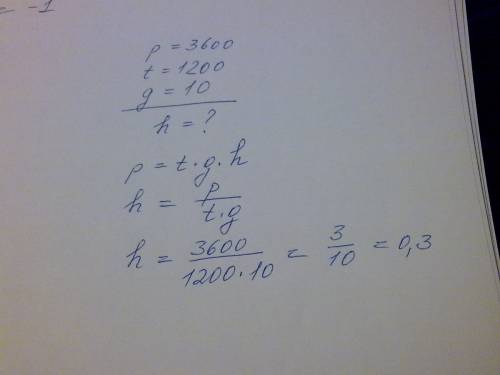 = -1
p = 3600
t = 1200
g = 10
h = ?
p = t·g·h
h = p/t·g
h = 3600/1200·10 = 3/10 = 0,3